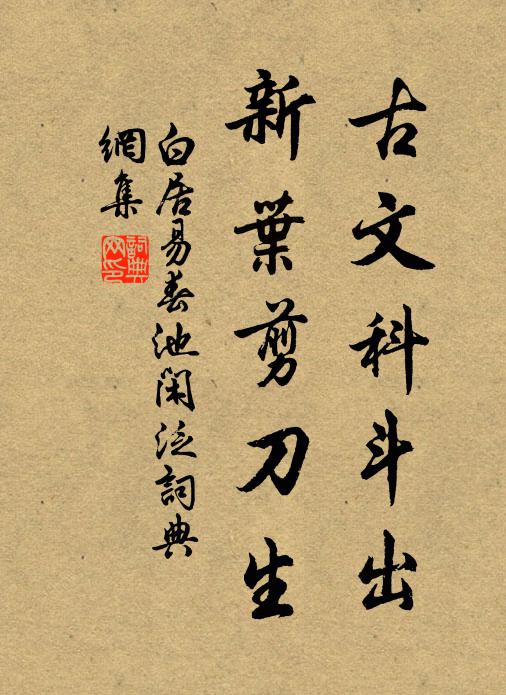 古文科斗出
新葉剪刀生
白居易春池闲泛詞典
網集
詞典
网印